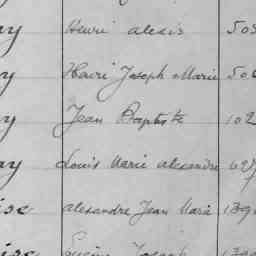 ay Henri alexis 505
ay Henri Joseph Marie 506
ay Jean Baptiste 102
ay Louis Marie alexandre 627
ise alexandre Jean Marie 139
ise Eugène Joseph